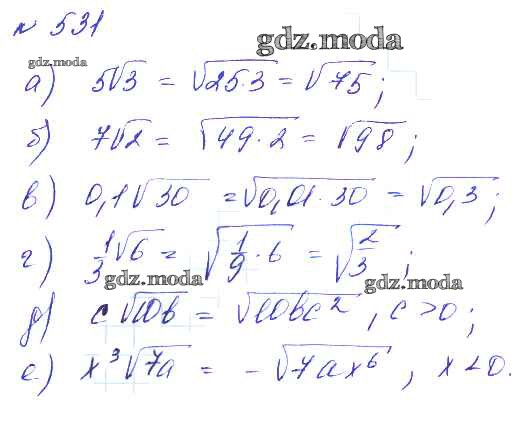 № 531
gdz.moda
gdz.moda
а) 5√3 = √25·3 = √75;
б) 7√2 = √49·2 = √98;
в) 0,1√30 = √0,01·30 = √0,3;
г) 1/3√6 = √1/9·6 = √2/3;
gdz.moda
gdz.moda
д) c√10b = √10bc², c > 0;
е) x³√7a = -√7ax⁶, x < 0.